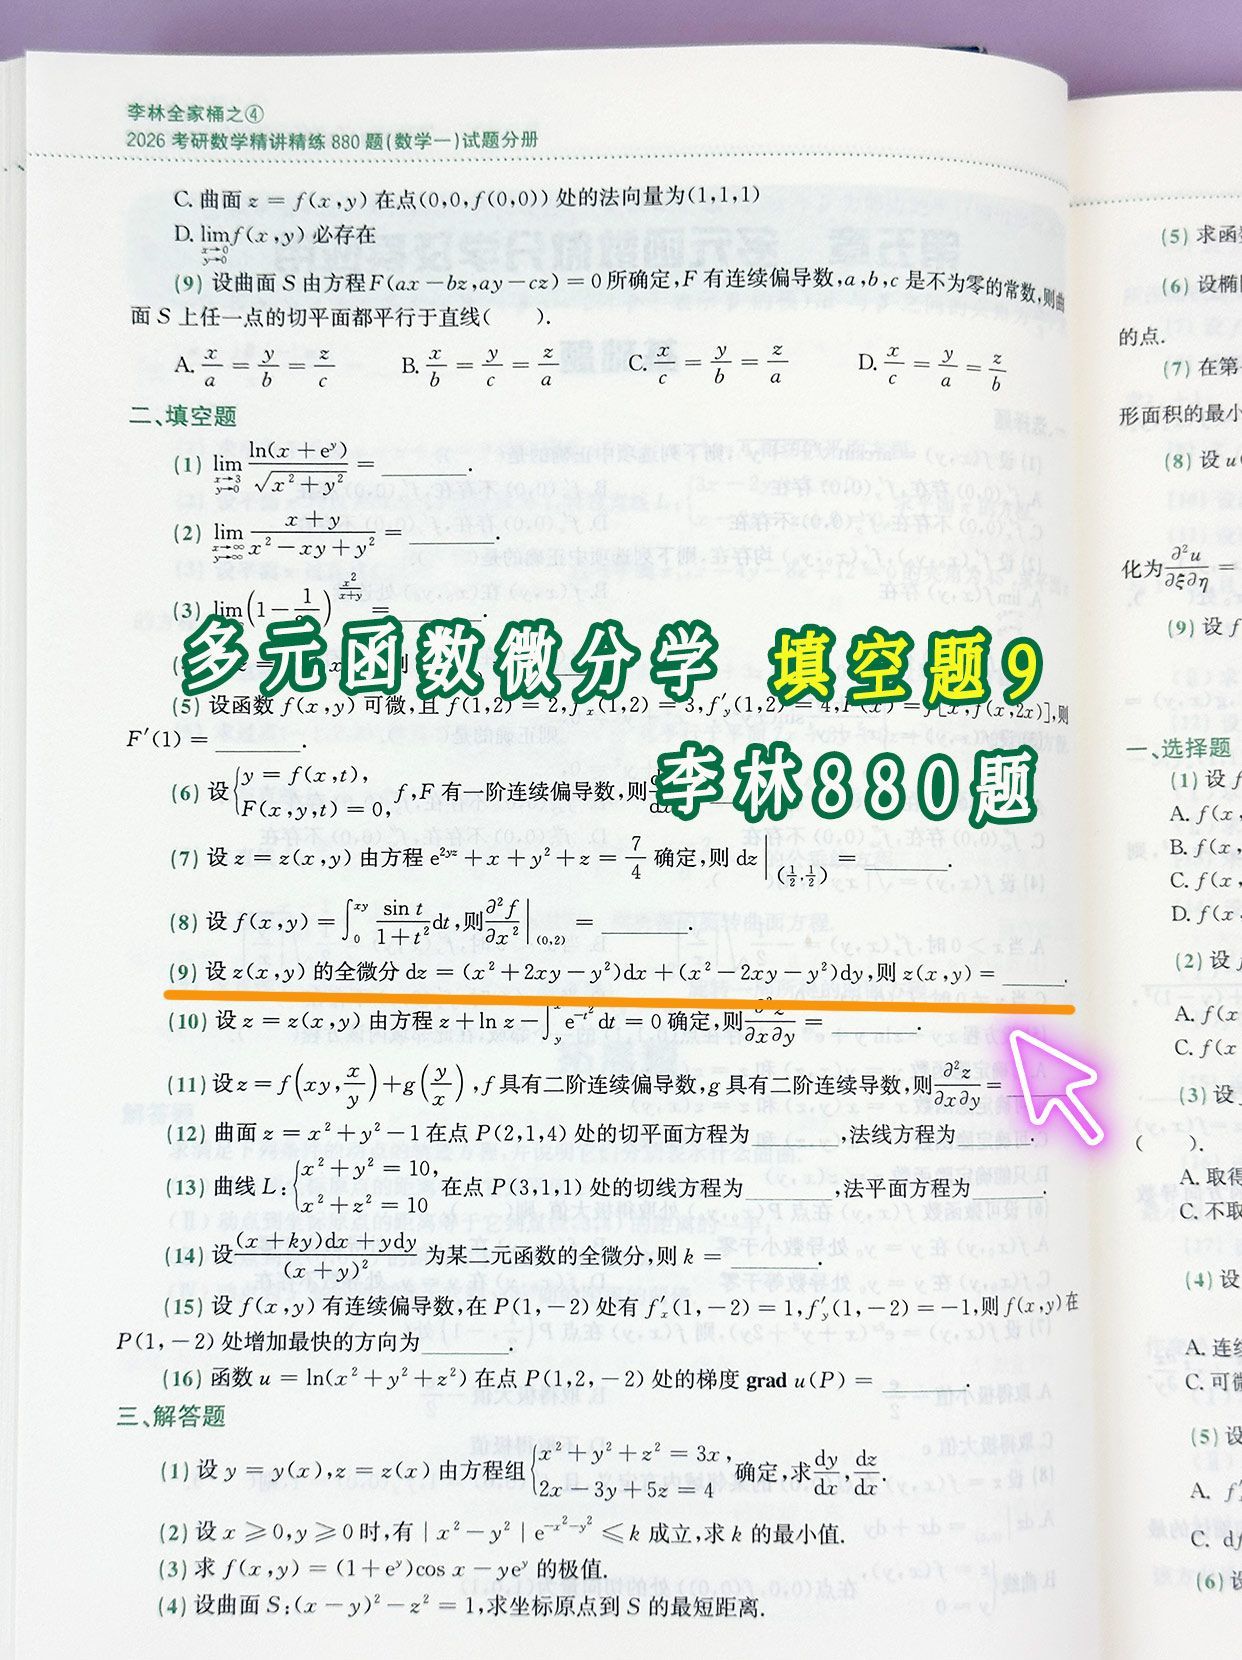 李林全家桶之④
2026 考研数学精讲精练 880 题(数学一)试题分册
C. 曲面 z = f(x,y) 在点(0,0,f(0,0)) 处的法向量为(1,1,1)
D. lim f(x,y) 必存在
x→0
y→0
(9) 设曲面 S 由方程 F(ax - bz,ay - cz) = 0 所确定,F 有连续偏导数,a,b,c 是不为零的常数,则曲
面 S 上任一点的切平面都平行于直线(  ).
A. x/a = y/b = z/c B. x/b = y/c = z/a C. x/c = y/b = z/a D. x/c = y/a = z/b
二、填空题
(1) lim x→3 y→0 ln(x + e^y)/√(x² + y²) = ______.
(2) lim x→∞ y→∞ (x + y)/(x² - xy + y²) = ______.
(3) lim (1 - 1/ )^(x²/(x+y)) = ______.
多元函数微分学 填空题9
(5) 设函数 f(x,y) 可微,且 f(1,2) = 2,f′x(1,2) = 3,f′y(1,2) = 4,F(x) = f[x,f(x,2x)],则
F′(1) = ______.
李林880题
(6) 设 { y = f(x,t), F(x,y,t) = 0, f,F 有一阶连续偏导数,则
(7) 设 z = z(x,y) 由方程 e^(2yz) + x + y² + z = 7/4 确定,则 dz|(1/2,1/2) = ______.
(8) 设 f(x,y) = ∫₀^(xy) sin t/(1+t²) dt,则 ∂²f/∂x²|(0,2) = ______.
(9) 设 z(x,y) 的全微分 dz = (x² + 2xy - y²)dx + (x² - 2xy - y²)dy,则 z(x,y) = ______.
(10) 设 z = z(x,y) 由方程 z + ln z - ∫_y^x e^(-t²) dt = 0 确定,则 ∂²z/∂x∂y = ______.
(11) 设 z = f(xy, x/y) + g(y/x),f 具有二阶连续偏导数,g 具有二阶连续导数,则 ∂²z/∂x∂y = ______
(12) 曲面 z = x² + y² - 1 在点 P(2,1,4) 处的切平面方程为______,法线方程为______.
(13) 曲线 L: { x² + y² = 10, x² + z² = 10 在点 P(3,1,1) 处的切线方程为______,法平面方程为______.
(14) 设 ((x + ky)dx + ydy)/(x + y)² 为某二元函数的全微分,则 k = ______.
(15) 设 f(x,y) 有连续偏导数,在 P(1,-2) 处有 f′x(1,-2) = 1,f′y(1,-2) = -1,则 f(x,y) 在
P(1,-2) 处增加最快的方向为______.
(16) 函数 u = ln(x² + y² + z²) 在点 P(1,2,-2) 处的梯度 grad u(P) = ______.
三、解答题
(1) 设 y = y(x),z = z(x) 由方程组 { x² + y² + z² = 3x, 2x - 3y + 5z = 4 确定,求 dy/dx, dz/dx.
(2) 设 x ⩾ 0,y ⩾ 0 时,有 | x² - y² | e^(-x²-y²) ⩽ k 成立,求 k 的最小值.
(3) 求 f(x,y) = (1 + e^y)cos x - ye^y 的极值.
(4) 设曲面 S:(x - y)² - z² = 1,求坐标原点到 S 的最短距离.
(5) 求函
(6) 设椭
的点.
(7) 在第
形面积的最小
(8) 设 u
化为 ∂²u/∂ξ∂η =
(9) 设 f
一、选择题
(1) 设 f
A. f(x,
B. f(x,
C. f(x,
D. f(x,
(2) 设
A. f(x
C. f(x
(3) 设
(  ).
A. 取得
C. 不取
(4) 设
A. 连续
C. 可微
(5) 设
A. f′
C. df
(6) 设